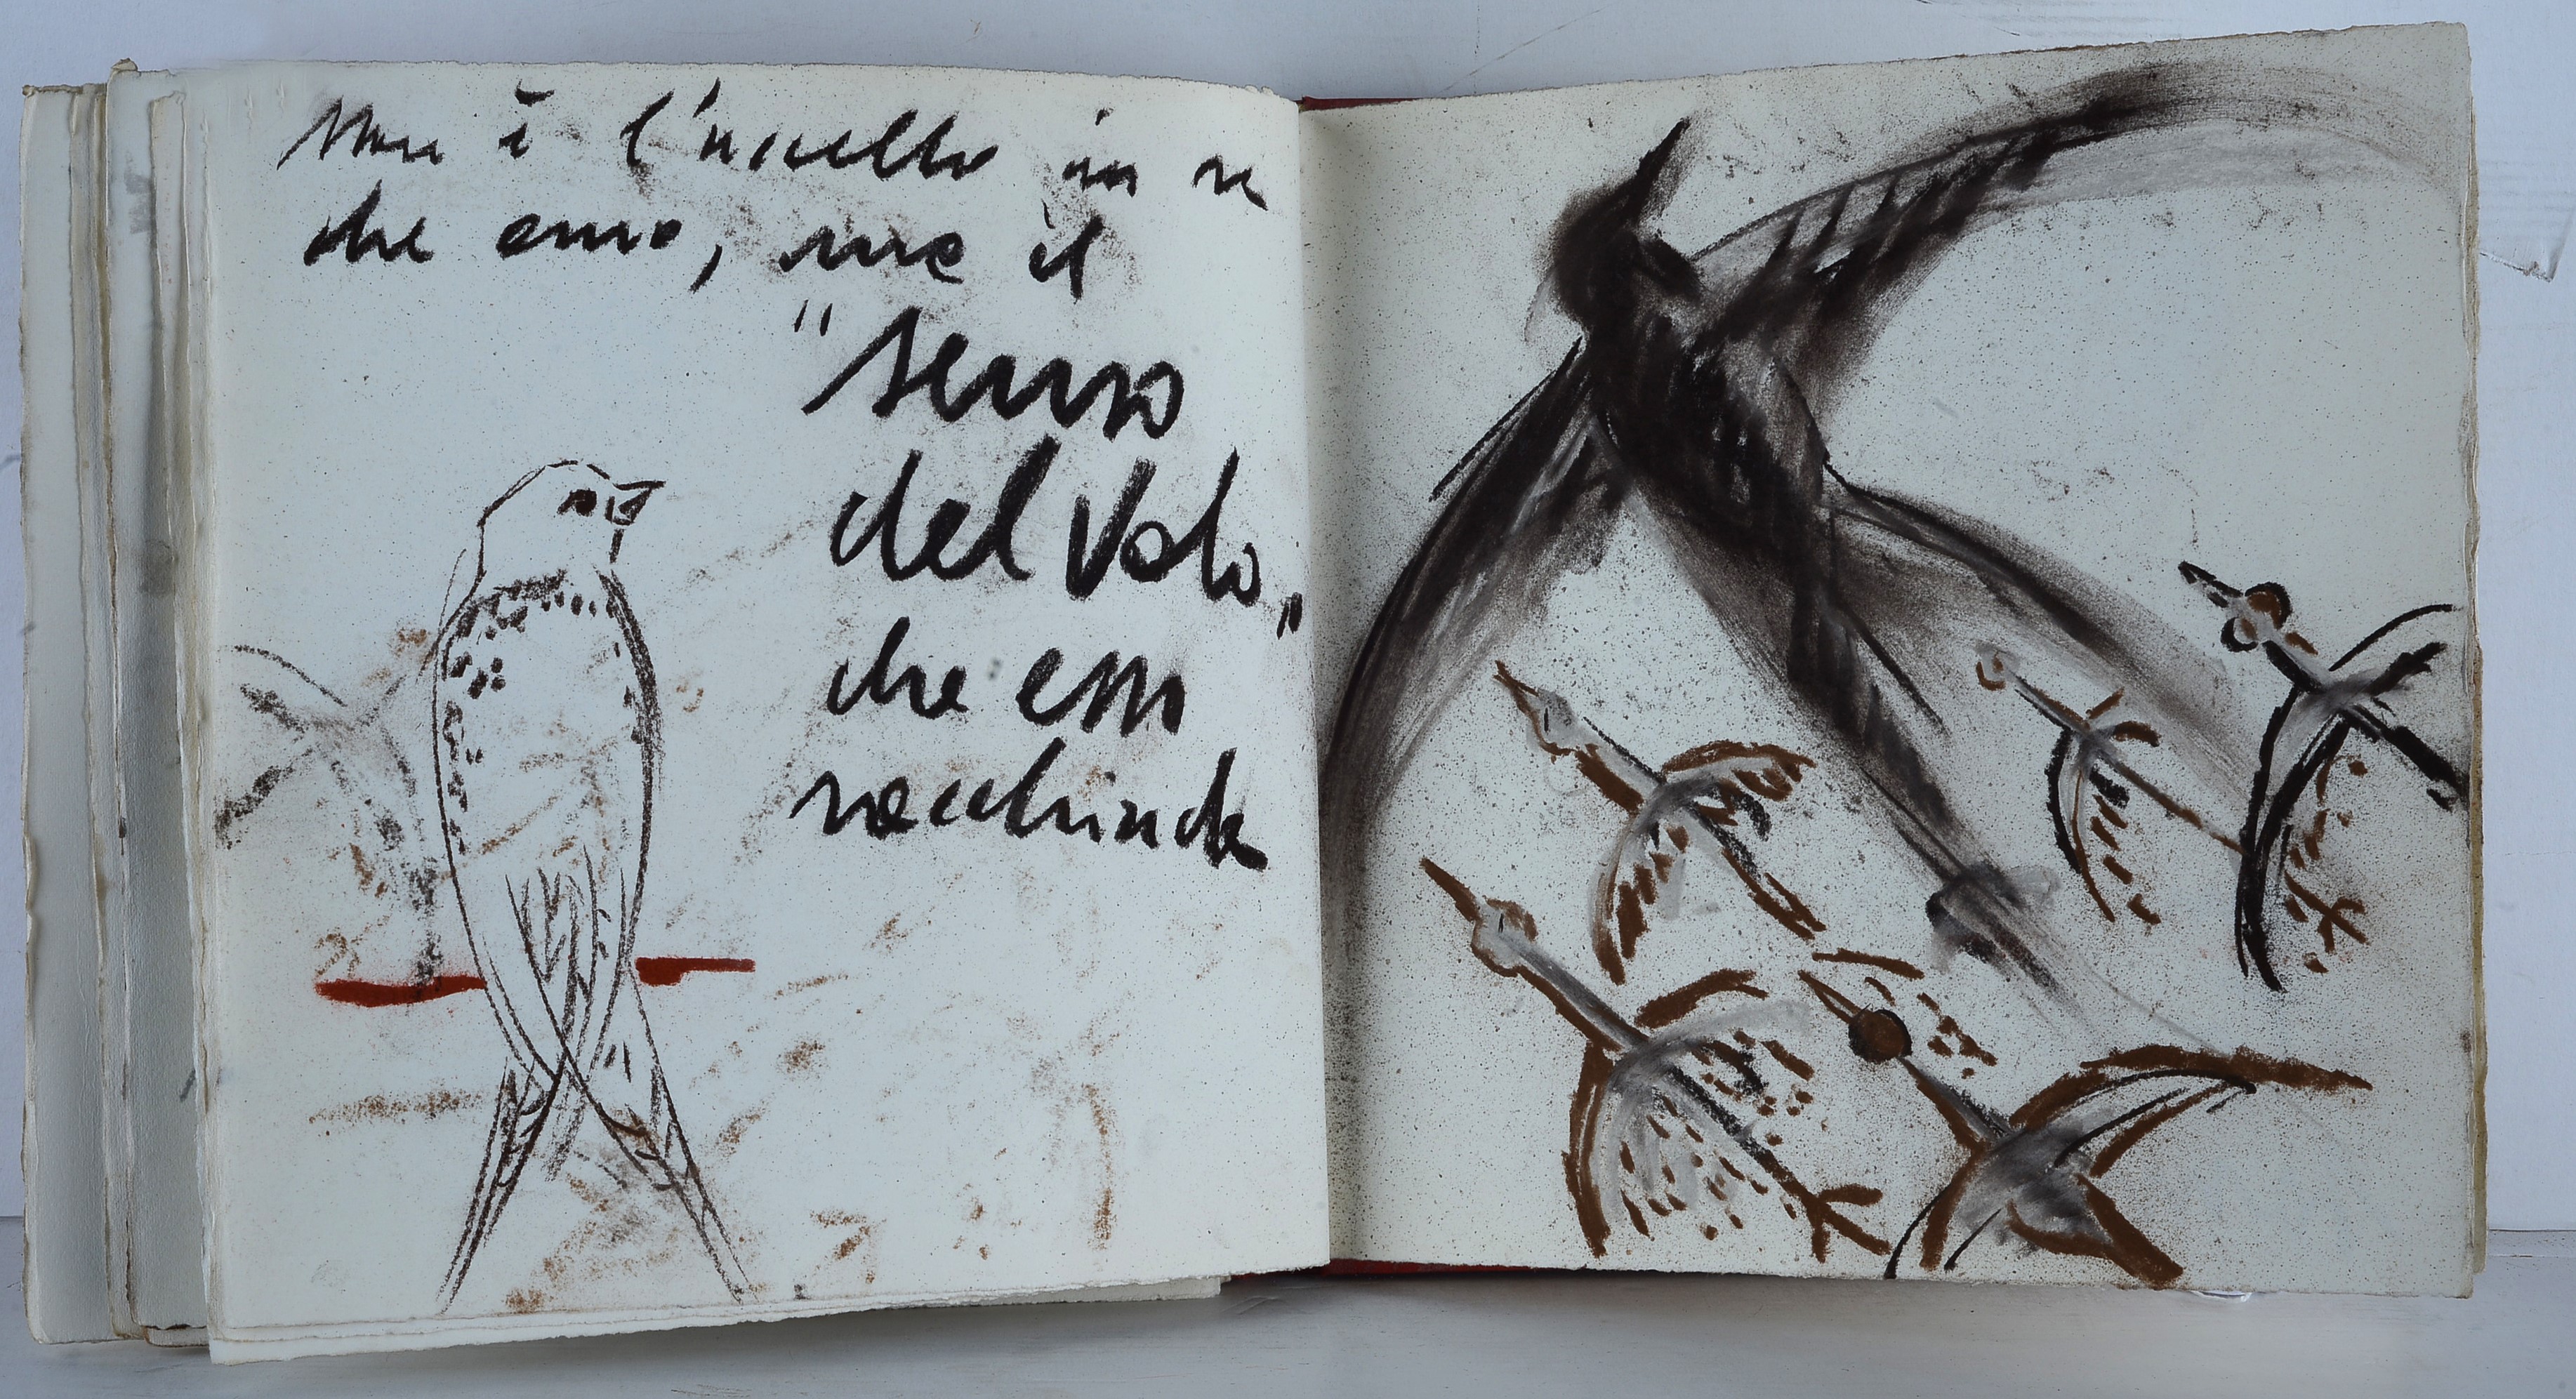 Non è l'uccello in sé
che amo, ma il
"senso
del volo"
che esso
racchiude